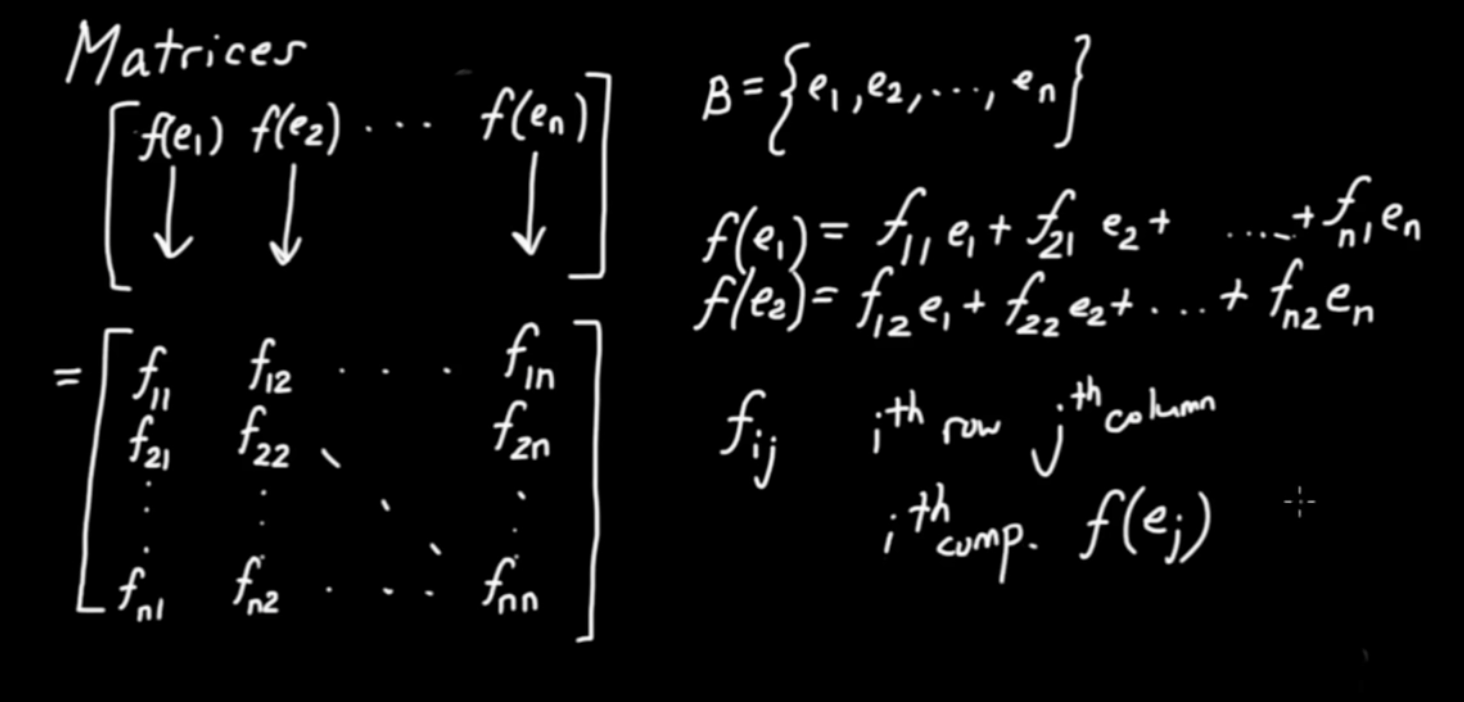 Matrices
[ f(e₁) f(e₂) ... f(eₙ) ]
= [ f₁₁ f₁₂ . . . f₁ₙ
f₂₁ f₂₂ ⋱ f₂ₙ
⋮ ⋮ ⋱ ⋮
fₙ₁ fₙ₂ . . . fₙₙ ]
B = {e₁, e₂, ..., eₙ}
f(e₁) = f₁₁ e₁ + f₂₁ e₂ + .... + fₙ₁ eₙ
f(e₂) = f₁₂ e₁ + f₂₂ e₂ + ... + fₙ₂ eₙ
fᵢⱼ iᵗʰ row jᵗʰ column
iᵗʰ comp. f(eⱼ)